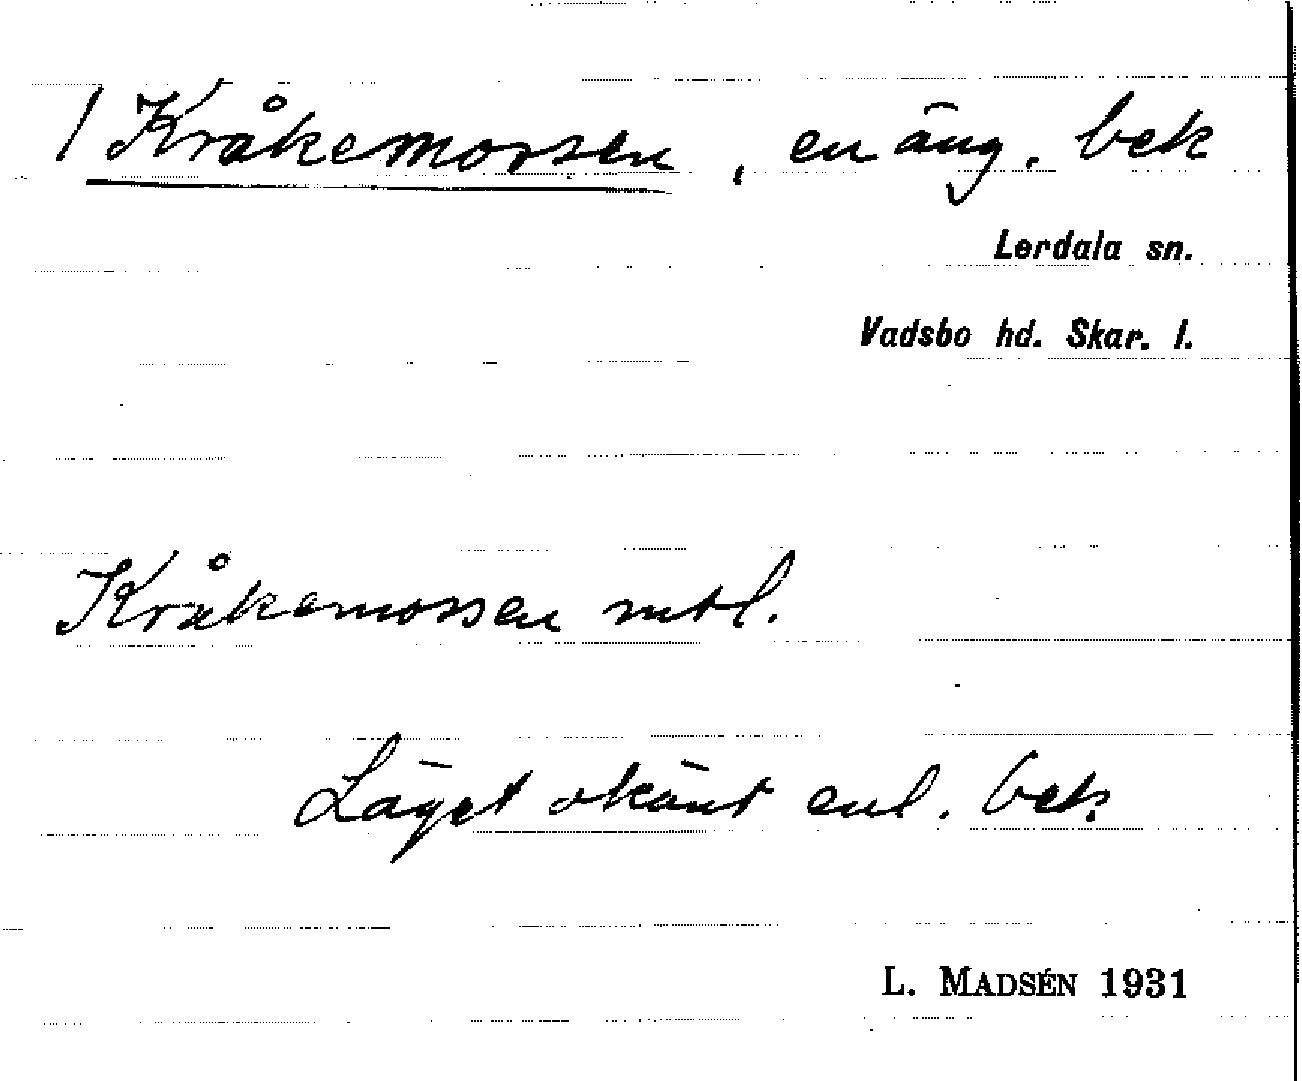 / Kråkemossen, en äng. bek
Lerdala sn.
Vadsbo hd. Skar. l.
Kråkemossen mtl.
Läget okänt enl. bek.
L. MADSÉN 1931